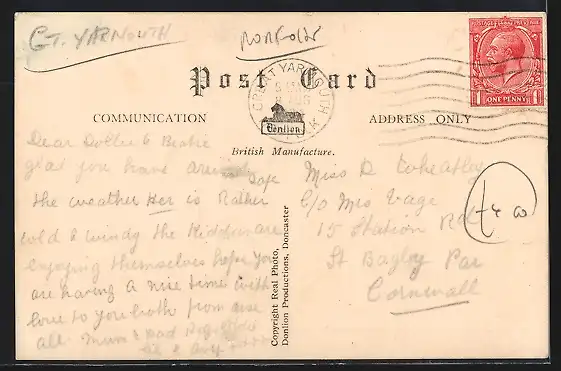 GT. YARMOUTH
NORFOLK
Post Card
POSTAGE REVENUE
ONE PENNY
1 1
GREAT YARMOUTH
NORFOLK
COMMUNICATION
ADDRESS ONLY
Donlion
British Manufacture.
Dear Dollie &
glad you have arrived safe
the weather Her is Rather
cold & windy the Kiddies are
enjoying themselves hope you
are having a nice time with
love to you both from us
all Mum & Dad
Copyright Real Photo,
Donlion Productions, Doncaster
Miss D Wheatley
C/o Mrs
15 Station Rd
St Par
Cornwall